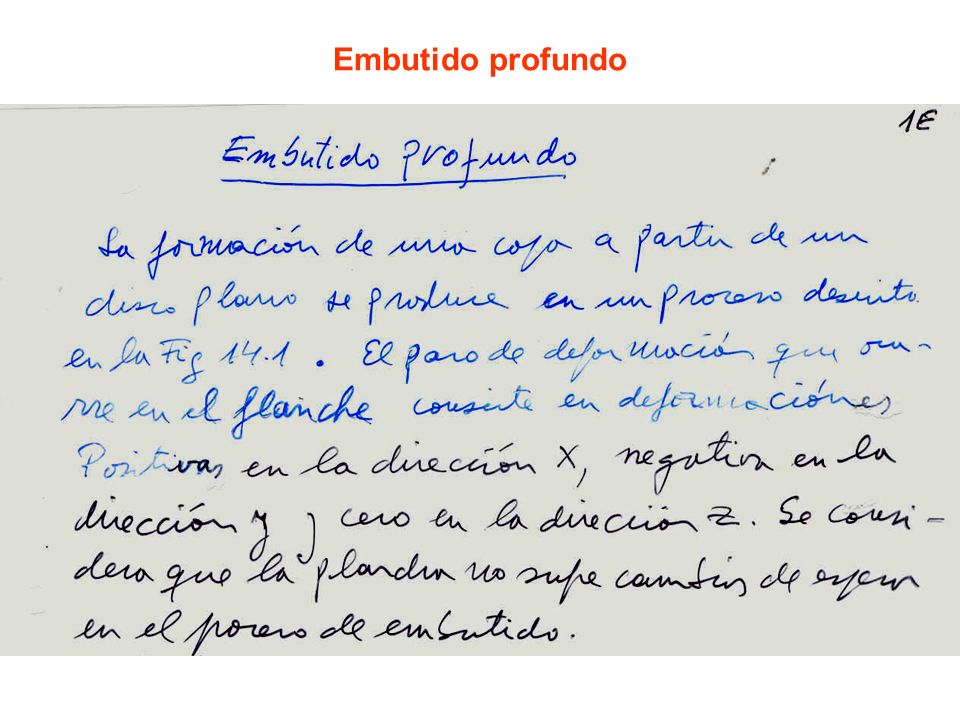 Embutido profundo
1E
Embutido profundo
La formación de una copa a partir de un
disco plano se produce en un proceso descrito
en la Fig 14.1. El paso de deformación que ocu-
rre en el flanche consiste en deformaciónes
Positivas en la dirección X, negativa en la
dirección y y cero en la dirección Z. Se consi-
dera que la plancha no sufre cambios de espesor
en el proceso de embutido.